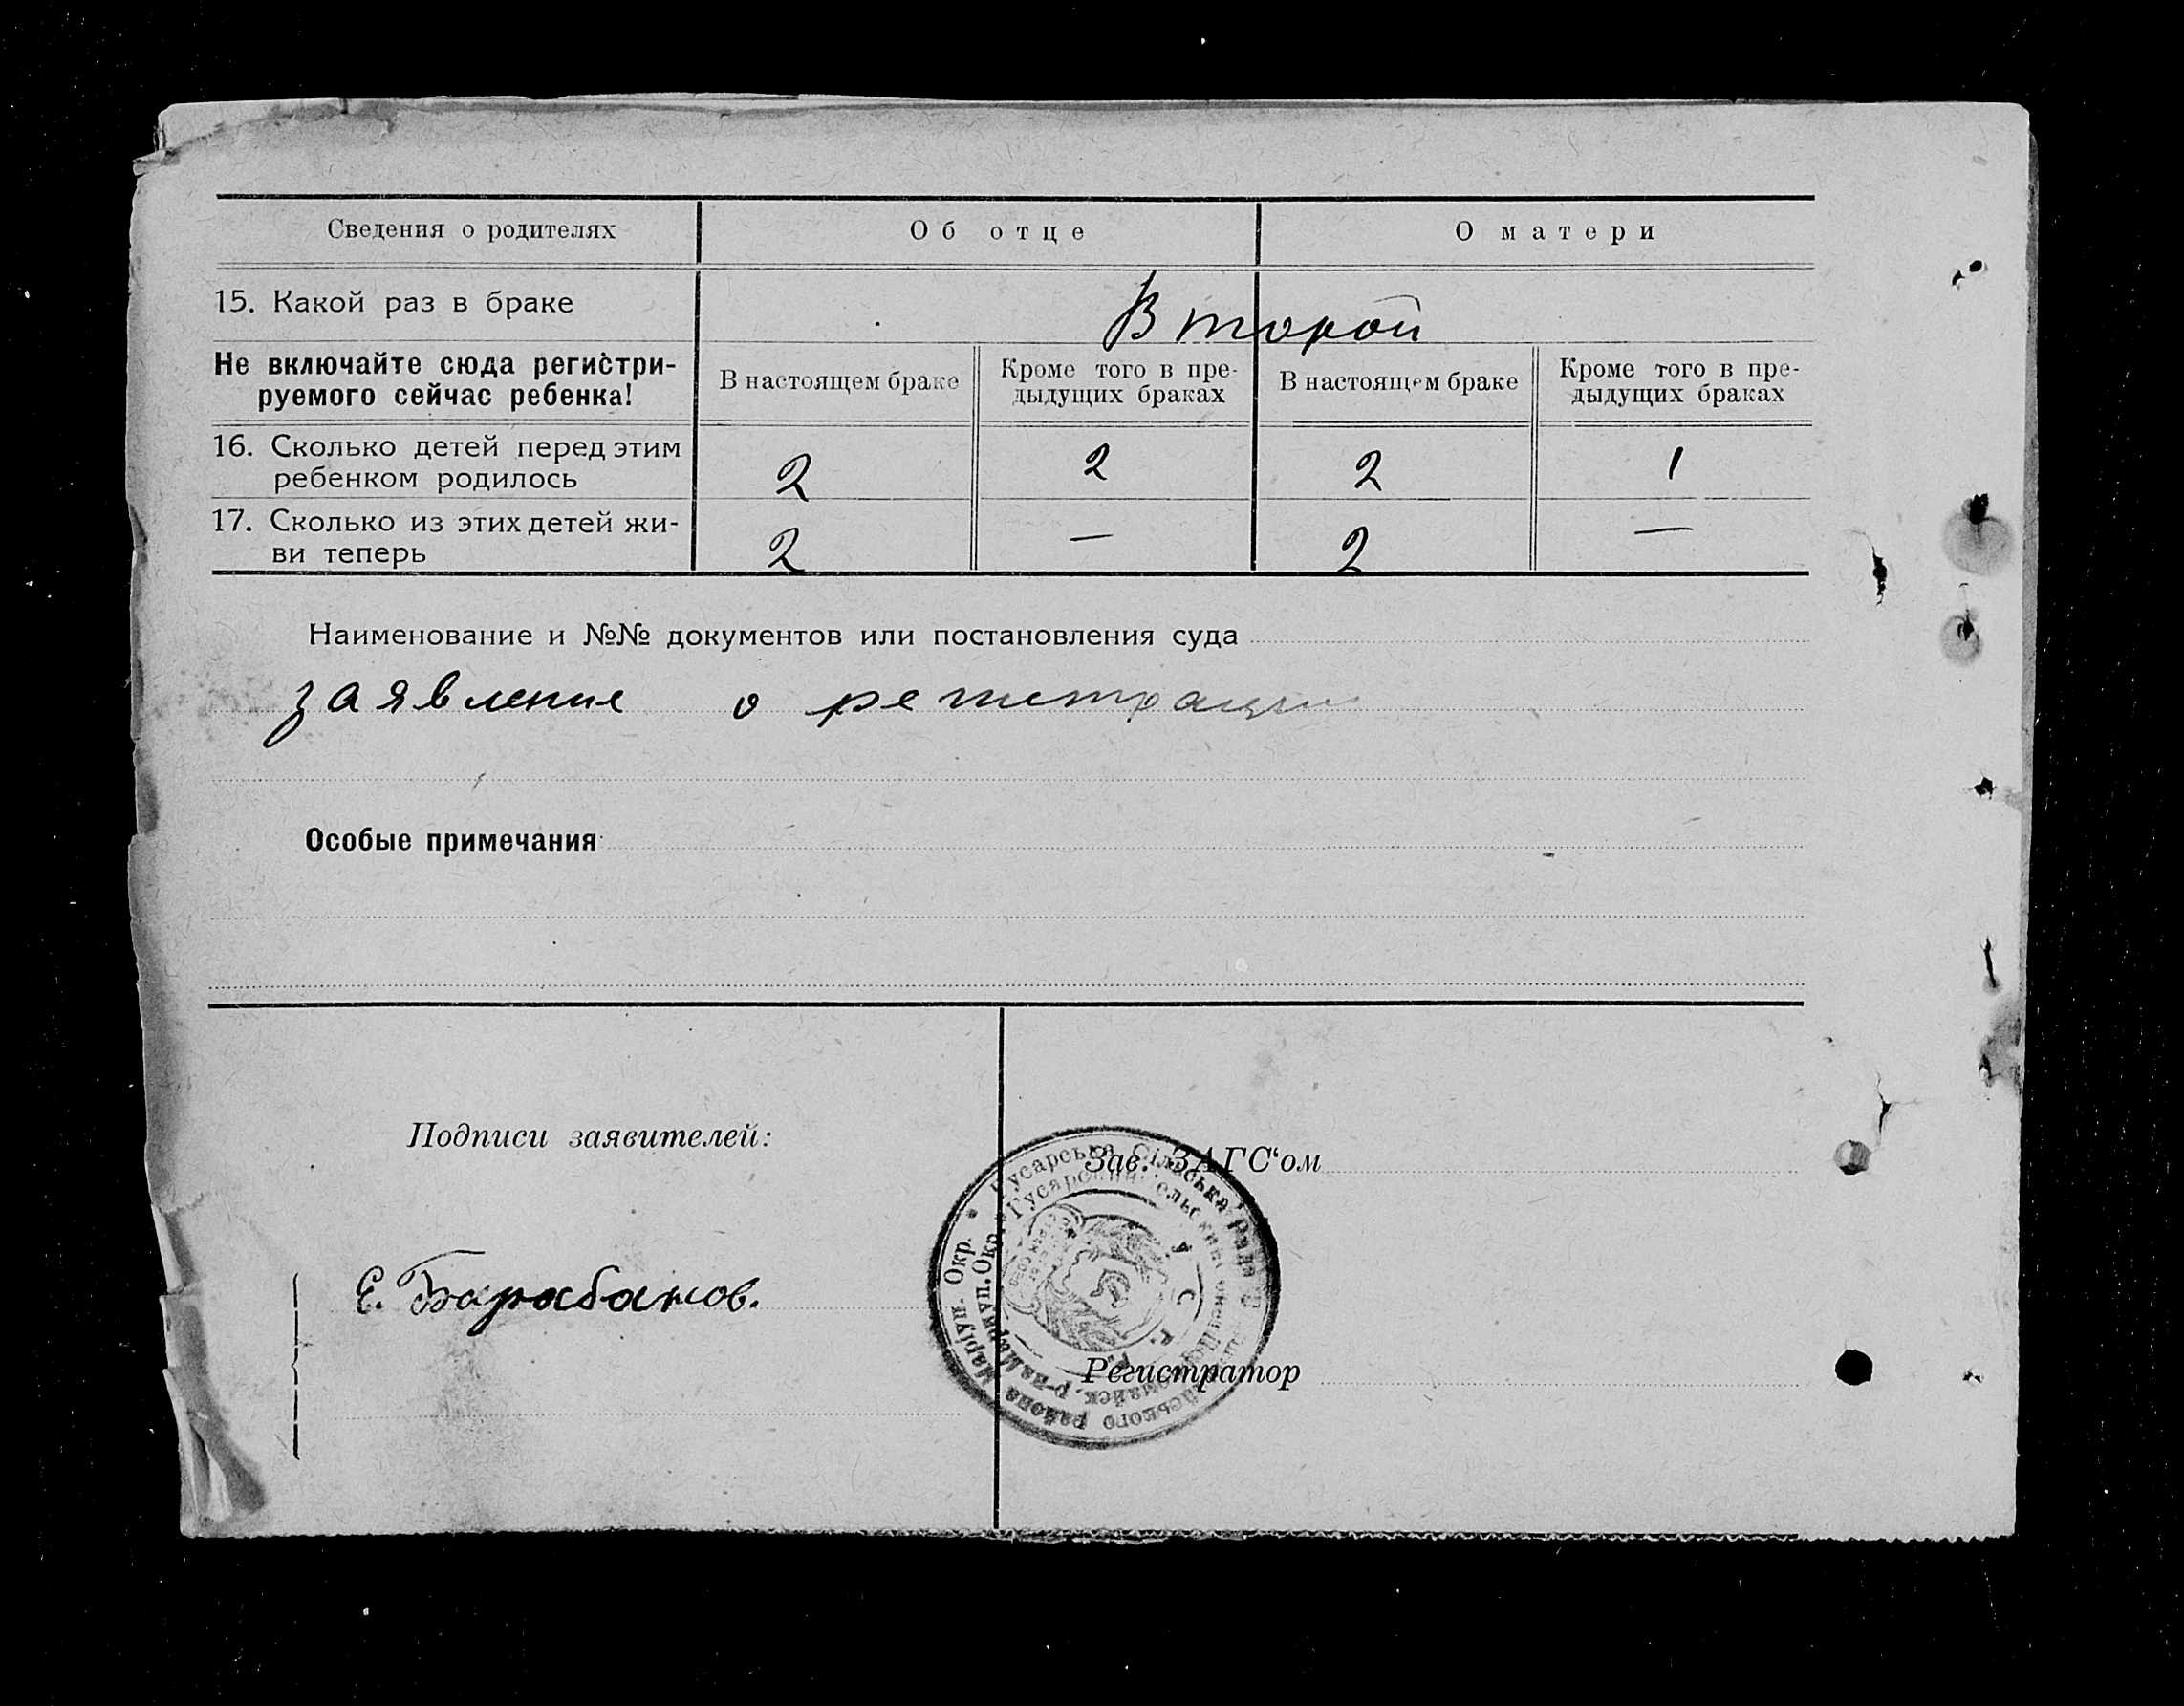 Сведения о родителях Об отце О матери
15. Какой раз в браке Второй
Не включайте сюда регистри-
руемого сейчас ребенка!
В настоящем браке
Кроме того в пре-
дыдущих браках
В настоящем браке
Кроме того в пре-
дыдущих браках
16. Сколько детей перед этим
ребенком родилось 2 2 2 1
17. Сколько из этих детей жи-
ви теперь 2 — 2 —
Наименование и №№ документов или постановления суда
заявление о регистрации
Особые примечания
Подписи заявителей:
Е. Барабанов.
Зав. ЗАГС‘ом
Регистратор
Гусарська Сільська Рада
района Маріуп. Окр.
Гусарский
р-на Мариуп. Окр.
У. С. С. Р.